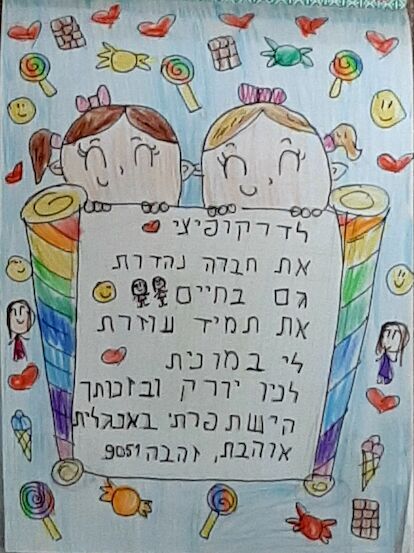 לדרקופיצי
את חברה נהדרת
גם בחיים
את תמיד עוזרת
לי במונית
לניו יורק ובזכותך
הישתפרתי באנגלית
אוהבת, זהבה 9051